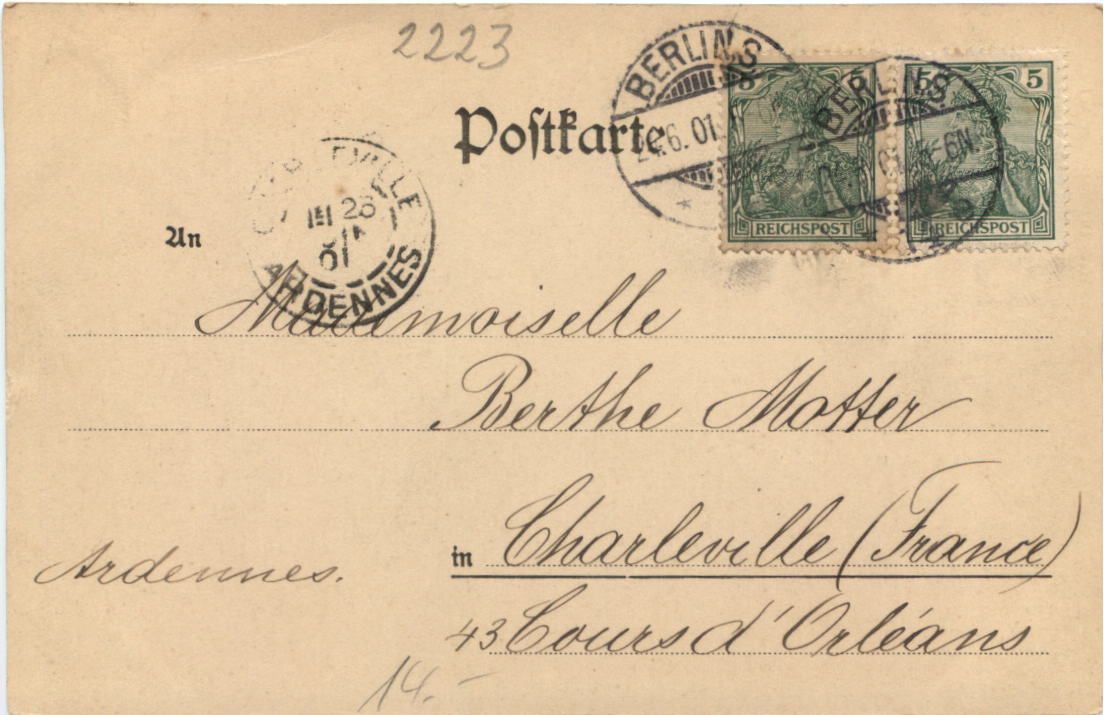 2223
Postkarte
BERLIN.S.
24.6.01
BERLIN.S.
5-6N.
5 5
REICHSPOST
5 5
REICHSPOST
CHARLEVILLE
26
01
ARDENNES
An
Mademoiselle
Berthe Motter
in Charleville (France)
Ardennes.
43 Cours d'Orléans
14.-